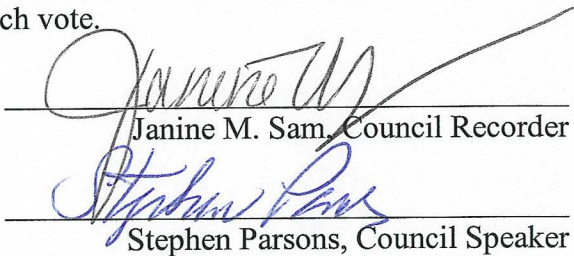 ch vote.
Janine M
Janine M. Sam, Council Recorder
Stephen Parsons
Stephen Parsons, Council Speaker